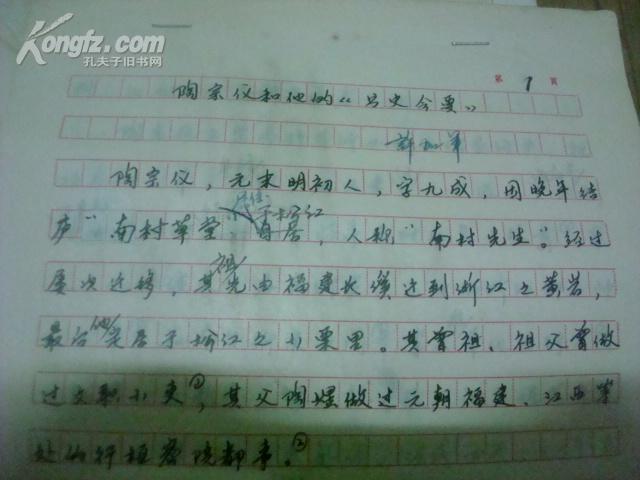 Kongfz.com
孔夫子旧书网
第 1 页
陶宗仪和他的《书史会要》
陶宗仪，元末明初人，字九成，因晚年结
居住于松江
庐"南村草堂自居，人称"南村先生"。经过
屡次迁移，其祖先由福建长溪迁到浙江之黄岩，
最后他定居于松江之小栗里。其曾祖、祖父曾做
过文职小吏①，其父陶煜做过元朝福建、江西等
处行枢密院都事。②